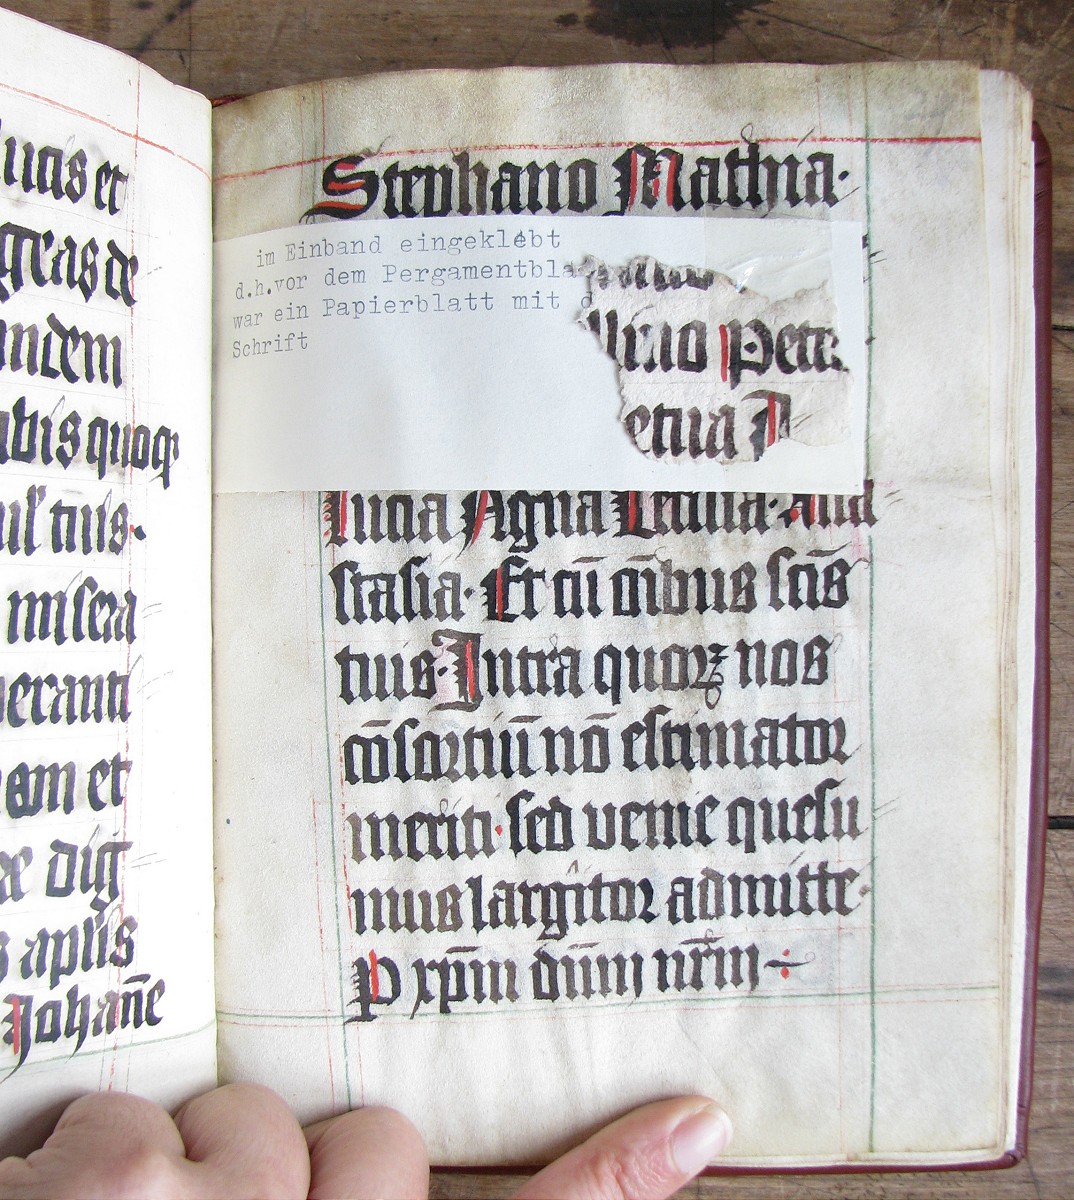 lucis et
greas de
andem
abis quoq
tuis·
misera
perauti
om et
dig
s aplis
Johan̄e
Stephano Mathia·
im Einband eingeklebt
d.h.vor dem Pergamentbla
war ein Papierblatt mit d
Schrift
llino Petr
etua A
lucia Agna Cecilia· Ana
stasia· Et cū oībus sc̄is
tuis· Intra quoꝝ nos
cōsortiū nō estimator
meriti· sed venie quesu
mus largitor admitte·
P xp̄m dn̄m nr̄m